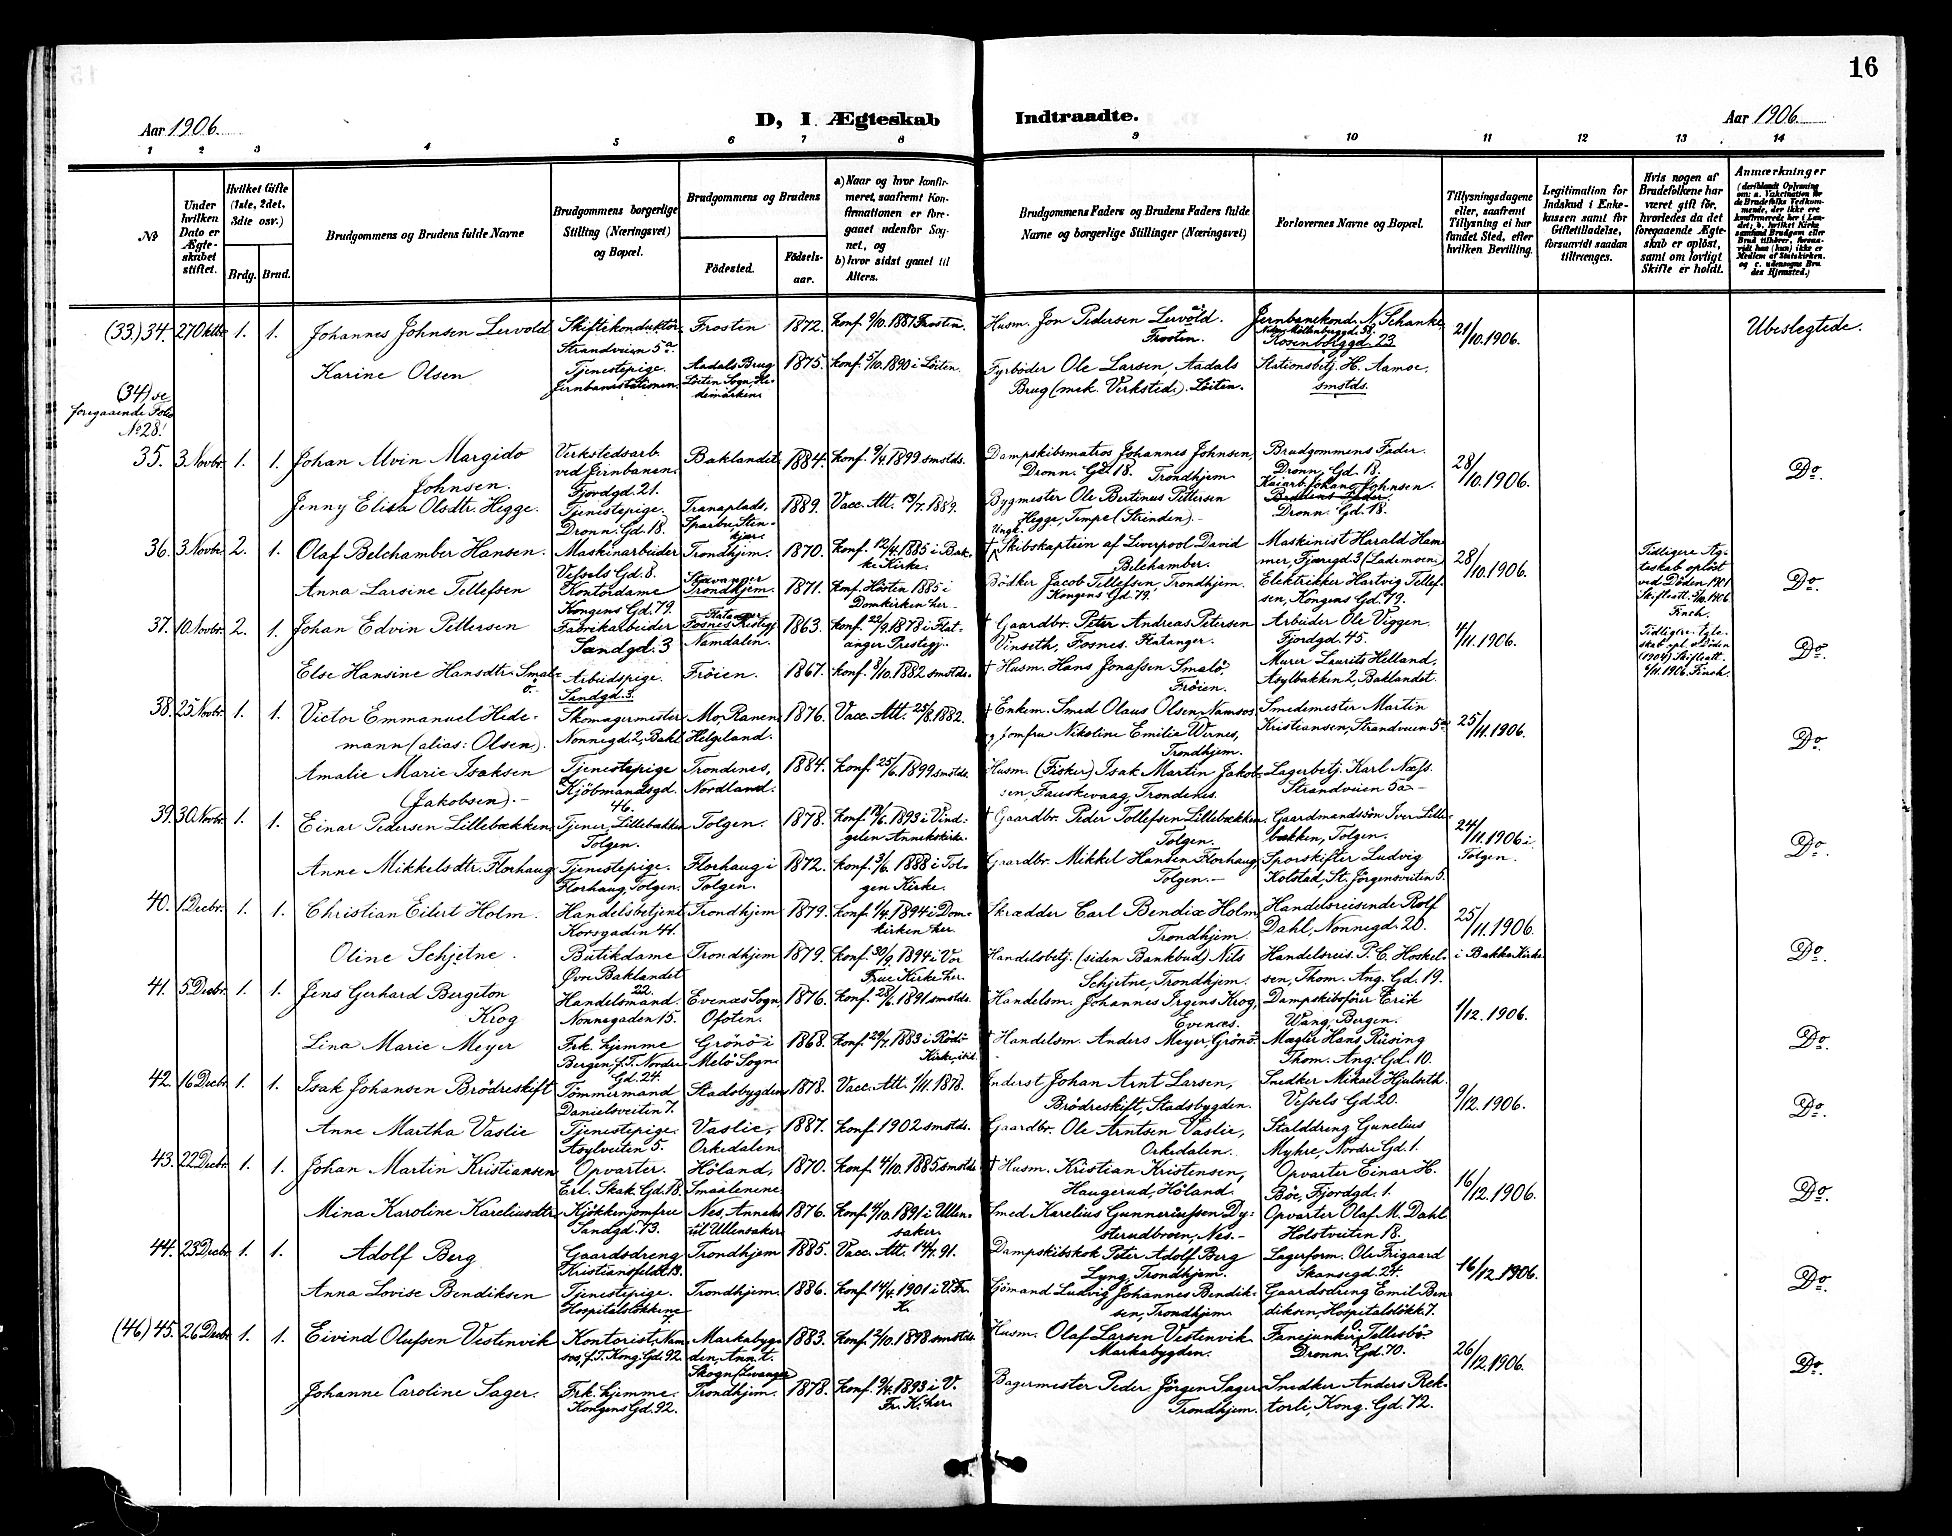 16
Aar 1906.
D, I Ægteskab
Indtraadte.
Aar 1906.
1 2 3 4 5 6 7 8 9 10 11 12 13 14
№
Under hvilken Dato er Ægteskabet stiftet.
Hvilket Gifte (1ste, 2det, 3die osv.)
Brdg. Brud.
Brudgommens og Brudens fulde Navne
Brudgommens borgerlige Stilling (Næringsvei) og Bopæl.
Brudgommens og Brudens
Födested.
Födselsaar.
a) Naar og hvor konfirmeret, saafremt Konfirmationen er foregaaet udenfor Sognet, og
b) hvor sidst gaaet til Alters.
Brudgommens Faders og Brudens Faders fulde Navne og borgerlige Stillinger (Næringsvei)
Forlovernes Navne og Bopæl.
Tillysningsdagene eller, saafremt Tillysning ei har fundet Sted, efter hvilken Bevilling.
Legitimation for Indskud i Enkekassen samt for Giftetilladelse, forsaavidt saadan tiltrænges.
Hvis nogen af Brudefolkene har været gift för, hvorledes da det foregaaende Ægteskab er oplöst, samt om lovligt Skifte er holdt.
Anmærkninger
(33) 34. 27 Oktbr. 1. 1. Johannes Johnsen Lervold Skiftekonduktör Strandveien 5a. Frosten 1872. Konf. 9/10. 1887 Frosten. Husm. Jon Pedersen Lervold. Frosten. Jernbanekond. N. Schanke Rosenborggd. 23 21/10. 1906. Ubeslegtede.
Karine Olsen Tjenestepige. Jernbanestationen. Aadals Brug Löiten Sogn, Hedemarken 1875. Konf. 5/10. 1890 i Löiten. Fyrböder Ole Larsen, Aadals Brug (mek. Verksted). Löiten. Stationsbetj. H. Aamoe, smstds.
(34) se foregaaende Folio No 28!
35. 3 Novbr. 1. 1. Johan Alvin Margido Johnsen. Verkstedsarb. ved Jernbanen. Fjordgd. 21. Baklandet 1884. Konf. 9/4. 1899 smstds. Dampskibsmatros Johannes Johnsen, Dronn. Gd. 18. Trondhjem. Brudgommens Fader. Dronn. Gd. 18. 28/10. 1906. Do.
Jenny Elisa Olsdtr. Hegge. Tjenestepige. Dronn. Gd. 18. Tranaplads, Sparbu, Stenkjær 1889. Vacc. Att. 13/7. 1889. Bygmester Ole Bertinus Pettersen Hegge, Tempe (Strinden). Kaiarb. Johan Johnsen. Brudens Fader. Dronn. Gd. 18.
36. 3 Novbr. 2. 1. Olaf Belchamber Hansen. Maskinarbeider Vessels Gd. 8. Trondhjem. 1870. Konf. 12/4. 1885 i Bakke Kirke. Ungk. † Skibskaptein af Liverpool David Belchamber. Maskinist Harald Hammer, Fjæregd. 3 (Lademoen). 28/10. 1906. Tidligere Ægteskab oplöst ved Döden 1901 Skifteatt. 5/10. 1906 Finch. Do.
Anna Larsine Tellefsen Kontordame Kongens Gd. 79. Stavanger Trondhjem. 1871. Konf. Hösten 1885 i Domkirken her. Bödker Jacob Tellefsen, Trondhjem. Kongens Gd. 79. Elektrikker Hartvig Tellefsen, Kongens Gd. 79.
37. 10 Novbr. 2. 1. Johan Edvin Pettersen Fabrikarbeider Sandgd. 3 Flatanger Fosnes Prestegj. Namdalen. 1863. Konf. 22/9. 1878 i Flatanger Prestegj. † Gaardbr. Peter Andreas Petersen Vinseth, Fosnes. Flatanger. Arbeider Ole Viggen. Fjordgd. 45. 4/11. 1906. Tidligere Ægteskab opl. v. Döden (1904) Skifteatt. 6/11. 1906. Finch. Do.
Else Hansine Hansdtr. Smalö. Arbeidspige. Sandgd. 3. Fröien. 1867. Konf. 8/10. 1882 smstds. † Husm. Hans Jonassen Smalö, Fröien. Murer Laurits Helland, Asylbakken 2, Baklandet.
38. 25 Novbr. 1. 1. Victor Emmanuel Hedemann (alias: Olsen). Skomagermester Nonnegd. 2, Bakl. Mo, Ranen, Helgeland. 1876. Vacc. Att. 25/8. 1882. † Enkem. Smed Olaus Olsen, Namsos og Jomfru Nikoline Emilia Wirnes, Trondhjem. Smedemester Martin Kristiansen, Strandveien 5a 25/11. 1906. Do.
Amalie Marie Isaksen (Jakobsen). Tjenestepige Kjöbmandsgd. 46. Trondenes, Nordland. 1884. Konf. 25/6. 1899 smstds. Husm. (Fisker) Isak Martin Jakobsen, Fauskevaag, Trondenes. Lagerbetj. Karl Næss. Strandveien 5a
39. 30 Novbr. 1. 1. Einar Pedersen Lillebækken. Tjener, Lillebækken Tolgen. Tolgen. 1878. Konf. 1893 i Vingelen Annekskirke. † Gaardbr. Peder Tollefsen Lillebækken. Tolgen. Gaardmandssön Iver Lillebækken, Tolgen. 24/11. 1906 i Tolgen. Do.
Anne Mikkelsdtr. Florhaug Tjenestepige. Florhaug, Tolgen. Florhaug i Tolgen. 1872. Konf. 3/6. 1888 i Tolgen Kirke. Gaardbr. Mikkel Hansen Florhaug, Tolgen. Sporskifter Ludvig Kolstad, St. Jörgensveiten 5.
40. 1 Decbr. 1. 1. Christian Eilert Holm. Handelsbetjent Korsgaden 41. Trondhjem 1879. Konf. 1/4. 1894 i Domkirken her. Skrædder Carl Bendix Holm, Trondhjem Handelsreisende Rolf Dahl, Nonnegd. 20. 25/11. 1906. i Bakke Kirke Do.
Oline Schjetne. Butikdame Övre Baklandet 22. Trondhjem 1879. Konf. 30/9. 1894 i Vor Frue Kirke her. Handelsbetj. (siden Bankbud) Nils Schjetne, Trondhjem. Handelsreis. P. C. Hoskelsen, Thom. Ang. Gd. 19.
41. 5 Decbr. 1. 1. Jens Gerhard Bergeton Krog Handelsmand. Nonnegaden 15. Evenæs Sogn, Ofoten. 1876. Konf. 28/6. 1891 smstds. † Handelsm. Johannes Irgens Krog, Evenæs. Dampskibsförer Erik Wang, Bergen. 1/12. 1906. Do.
Lina Marie Meyer Frk. hjemme Bergen, f. T. Nordre Gd. 24. Grönö i Melö Sogn. 1868. Konf. 29/7. 1883 i Rödö Kirke, ibid. † Handelsm. Anders Meyer, Grönö. Mægler Hans Riising Thom. Ang. Gd. 10.
42. 16 Decbr. 1. 1. Isak Johansen Brödreskift Tömmermand Danielsveiten 7. Stadsbygden 1878. Vacc. Att. 1/11. 1878. Inderst Johan Arnt Larsen, Brödreskift, Stadsbygden. Snedker Mikael Hjulseth. Vessels Gd. 20. 9/12. 1906. Do.
Anne Martha Vaslie Tjenestepige. Asylveiten 5. Vaslie, Orkedalen. 1887. Konf. 1902 smstds. Gaardbr. Ole Arntsen Vaslie, Orkedalen. Stalddreng Gunelius Myhre, Nordre Gd. 1.
43. 22 Decbr. 1. 1. Johan Martin Kristiansen Opvarter. Erl. Skak. Gd. 18. Höland, Smaalenene. 1870. Konf. 4/10. 1885 smstds. † Husm. Kristian Kristensen, Haugerud, Höland. Opvarter Einar H. Böe, Fjordgd. 1. 16/12. 1906. Do.
Mina Karoline Kareliusdtr. Kjökkenjomfru Sandgd. 73. Nes, Anneks til Ullensaker 1876. Konf. 4/10. 1891 i Ullensaker. Smed Karelius Gunneriussen Dysterudbroen, Nes. Opvarter Olaf M. Dahl Holstveiten 18.
44. 23 Decbr. 1. 1. Adolf Berg Gaardsdreng Kristiansfeldt 13. Trondhjem 1885. Vacc. Att. 14/7. 91. Dampskibskok Peter Adolf Berg Lyng, Trondhjem. Lagerform. Ole Frigaard Skansegd. 24. 16/12. 1906. Do.
Anna Lovise Bendiksen Tjenestepige. Hospitalslökkene 7 Trondhjem. 1886. Konf. 14/4. 1901 i V. Fr. K. Sjömand Ludvig Johannes Bendiksen, Trondhjem. Gaardsdreng Emil Bendiksen, Hospitalslökk. 7.
(46) 45. 26 Decbr. 1. 1. Eivind Olufsen Vestenvik Kontorist, Namsos, f. T. Kong. Gd. 92. Markabygden, Ann. t. Skogn, Levanger 1883. Konf. 2/10. 1898 smstds. Husm. Olaf Larsen Vestenvik Markabygden. Fanejunker O. Tellesbö. Dronn. Gd. 70. 26/12. 1906. Do.
Johanne Caroline Sager. Frk. hjemme. Kongens Gd. 92. Trondhjem. 1878. Konf. 9/4. 1893 i V. Fr. K. her. Bagermester Peder Jörgen Sager Trondhjem. Snedker Anders Rektorli, Kong. Gd. 72.